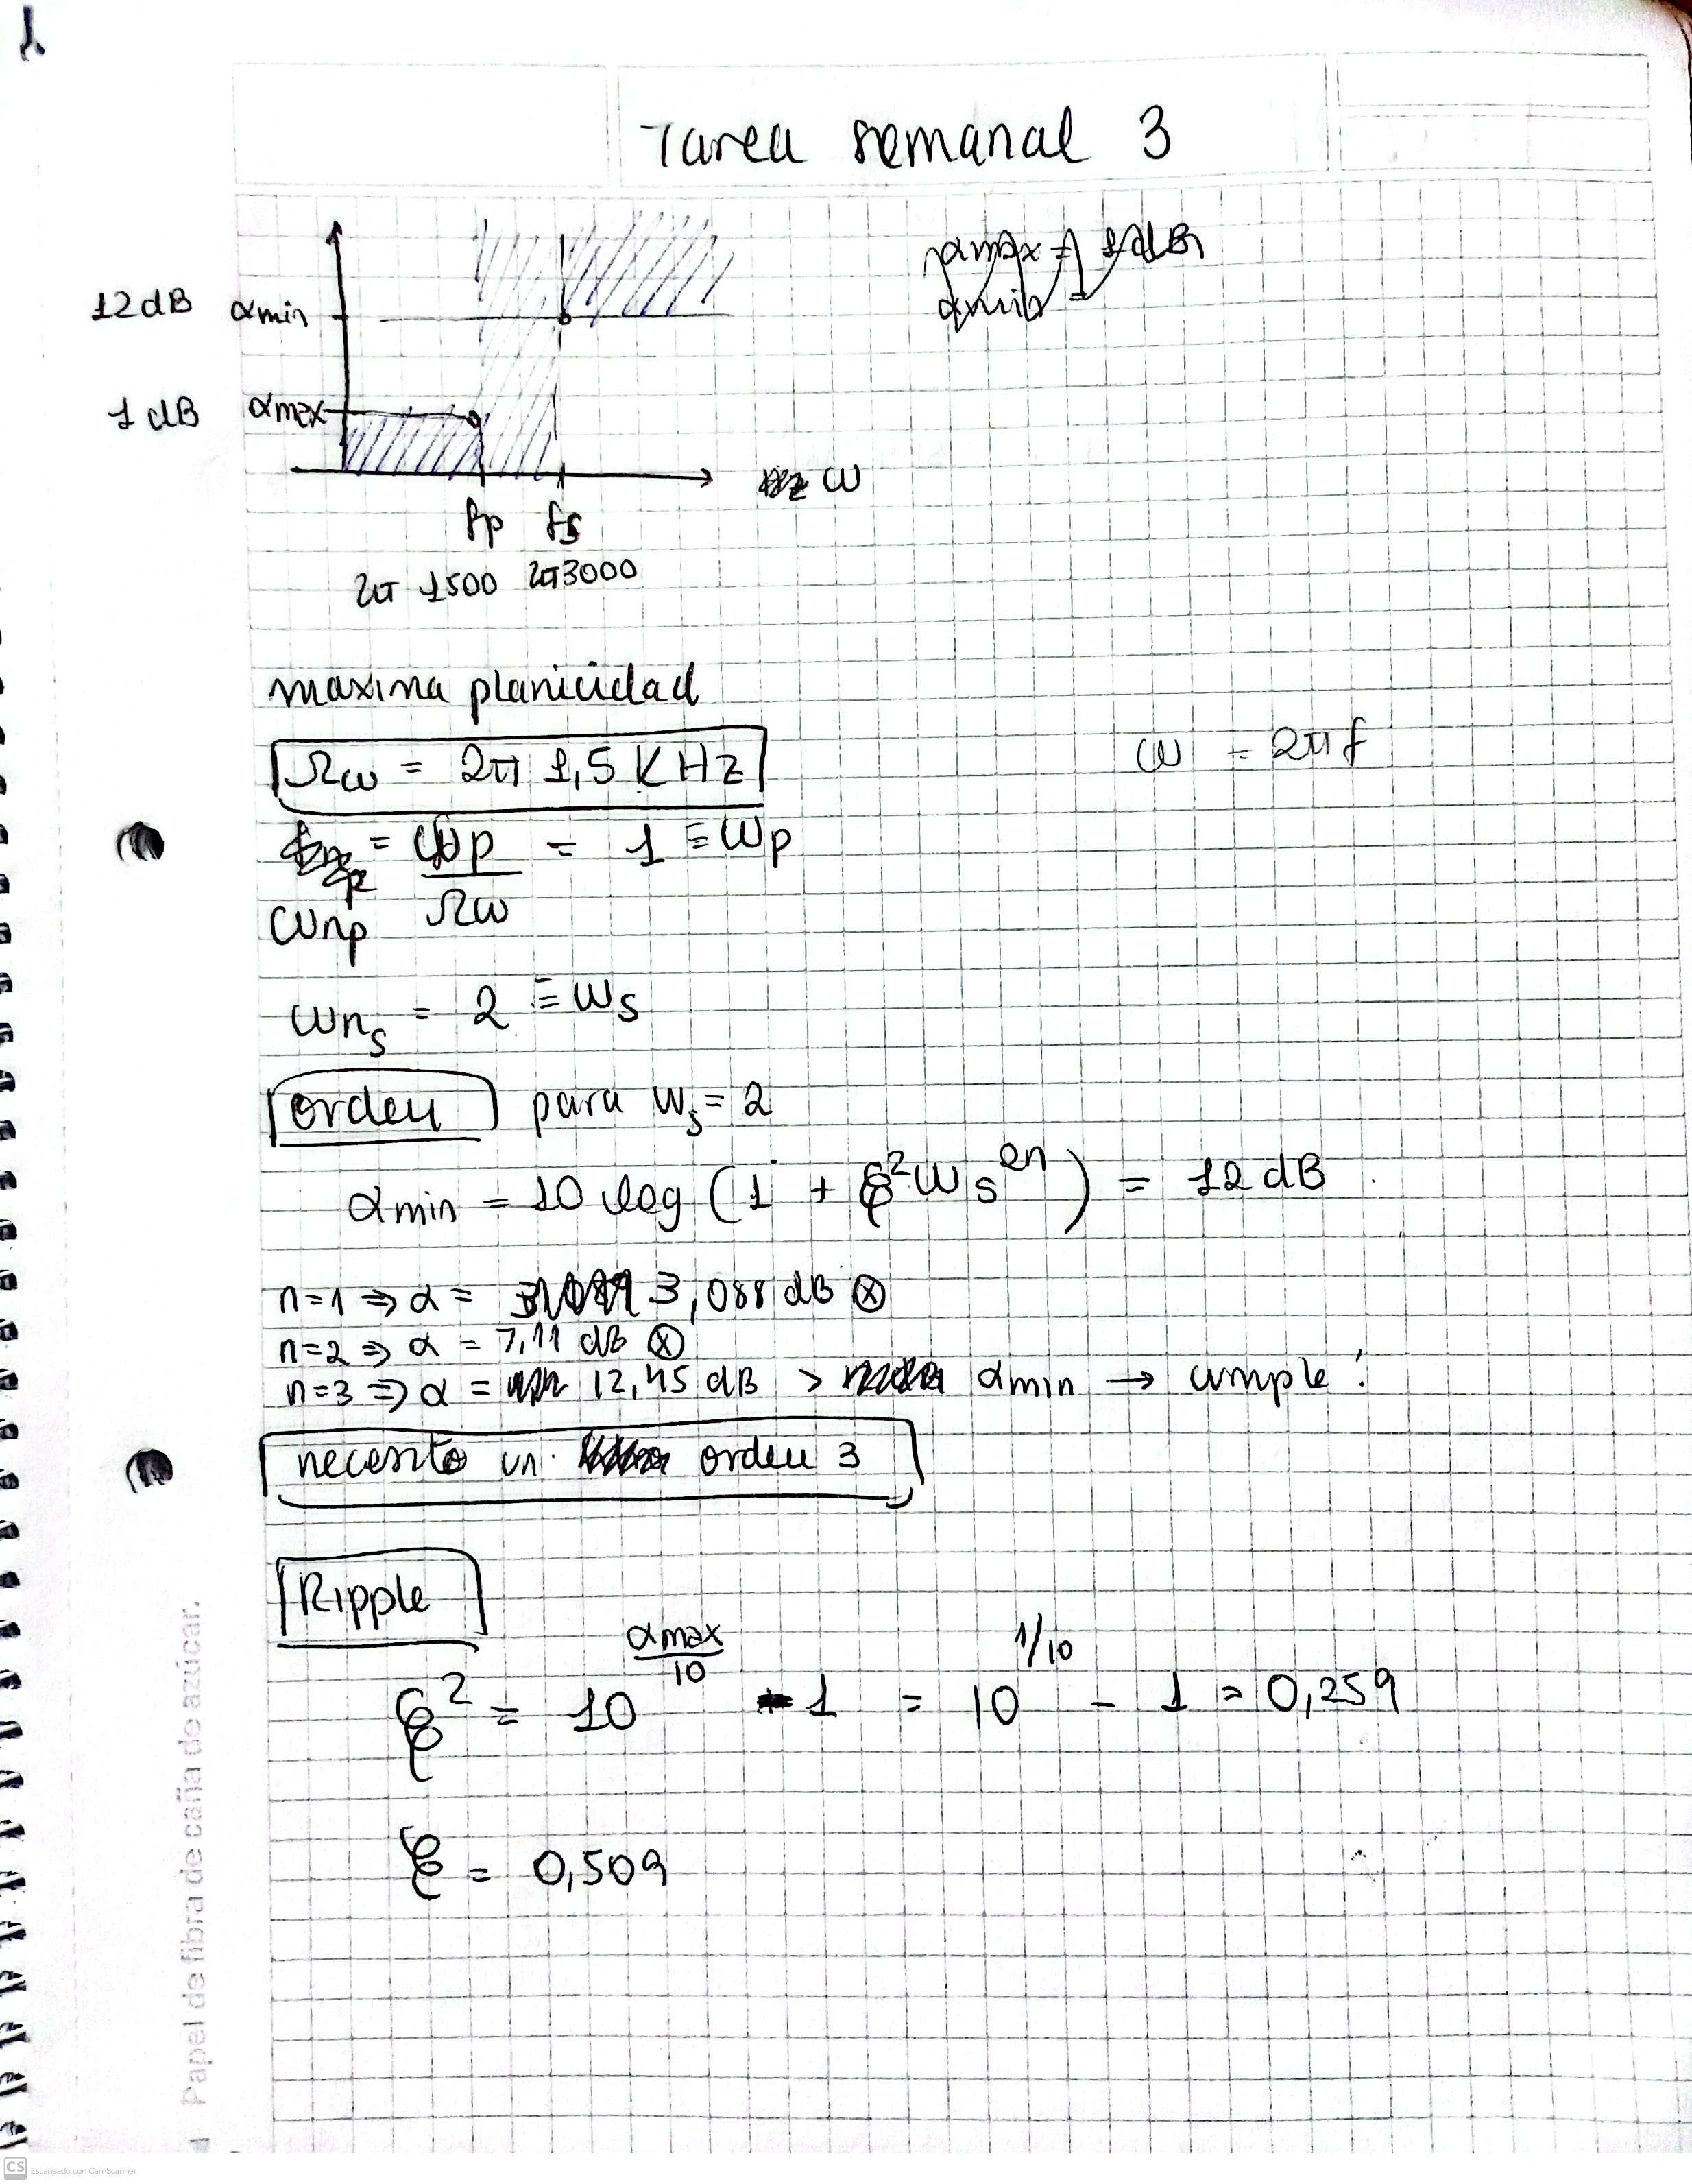 Tarea semanal 3
12dB αmin
1 dB αmax
ω
fp fs
2π 1500 2π3000
maxima planicidad
Ωω = 2π 1,5 KHz
ω = 2πf
ωnp = ωp / Ωω = 1 ≡ ωp
ωns = 2 ≡ ωs
orden para ωs = 2
αmin = 10 log (1 + ξ² ωs^2n) = 12 dB
n=1 ⇒ α = 3,088 dB ⊗
n=2 ⇒ α = 7,11 dB ⊗
n=3 ⇒ α = 12,45 dB > αmin → cumple!
necesito un orden 3
Ripple
ξ² = 10^(αmax/10) - 1 = 10^(1/10) - 1 = 0,259
ξ = 0,509
Papel de fibra de caña de azúcar.
CS Escaneado con CamScanner